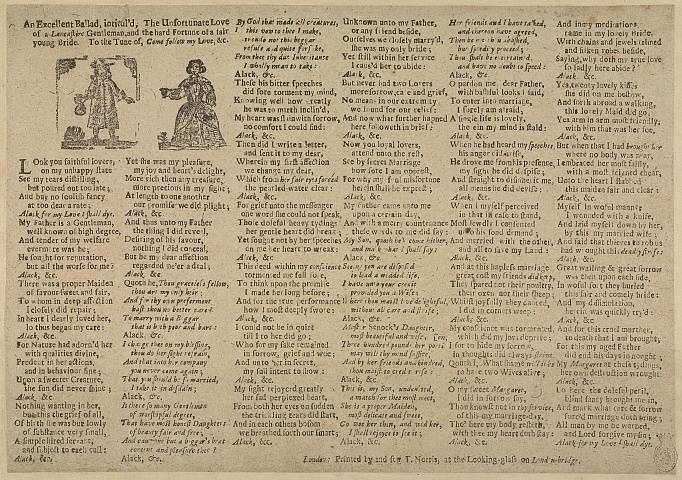 An Excellent Ballad, intitul'd, The Unfortunate Love
of a Lancashire Gentleman, and the hard Fortune of a fair
young Bride. To the Tune of, Come follow my Love, &c.
LOok you faithful lovers,
on my unhappy state
See my tears distilling,
but poured out too late;
And buy no foolish fancy
at too dear a rate;
Alack for my Love I shall dye.
My Father is a Gentleman,
well known of high degree,
And tender of my welfare
evermore was he;
He sought for reputation,
but all the worse for me?
Alack, &c.
There was a proper Maiden
of favour sweet and fair,
To whom in deep affection
I closely did repair;
In heart I dearly loved her,
lo thus began my care:
Alack, &c.
For Nature had adorn'd her
with qualities divine,
Prudent in her actions,
and in behaviour fine;
Upon a sweeter Creature,
the sun did never shine;
Alack, &c
Nothing wanting in her,
but this the grief of all,
Of birth she was but lowly
of substance very small,
A simple hired servant,
and subject to each call:
Alack, &c.
Yet she was my pleasure,
my joy and heart's delight,
More rich then any treasure,
more precious in my sight;
At length to one another
our promise we did plight;
Alack, &c.
And thus unto my Father
the thing I did reveal,
Desiring of his favour,
nothing I did conceal,
But he my dear affection
regarded ne'er a deal;
Alack, &c.
Quoth he, Thou graceless fellow,
thou art my only heir,
And for thy own preferment
hast thou no better care?
To marry with a beggar
that is both poor and bare:
Alack, &c.
I charge thee on my blessing,
thou do her sight refrain,
And that into her company
you never come again;
That you should be so married,
I take it in disdain;
Alack, &c.
Is there so many Gentlemen
of worshipful degree,
That have most honest Daughters
of beauty fair and free;
And can none but a beggar's brat
content and pleasure thee?
Alack, &c.
By God that made all creatures,
this vow to thee I make,
for this beggar
refuse and quite forsake,
From thee thy due Inheritance
I wholly mean to take:
Alack, &c.
These his bitter speeches
did sore torment my mind,
Knowing well how greatly
he was to wrath inclin'd,
My heart was slain with sorrow,
no comfort I could find:
Alack, &c.
Then did I write a letter,
and sent it to my dear,
Wherein my first affection
we change my dear,
Which from her fair eyes forced
the pearled-water clear:
Alack, &c.
For grief unto the messenger
one word she could not speak,
Those doleful heavy tydings
her gentle heart did break:
Yet sought not by her speeches
on me her heart to wreak:
Alack, &c
This deed within my conscience
tormented me full sore,
To think upon the promise
I made her long before;
And for the true performance
how I most deeply swore:
Alack, &c.
I could not be in quiet
till I to her did go;
Who for my sake remained
in sorrow, grief and woe;
And unto her in secret,
my full intent to show:
Alack, &c.
My sight rejoyced greatly
her sad perplexed heart,
From both her eyes on sudden
the trickling tears did start,
And in each others bosom
we breathed forth our smart;
Alack, &c.
Unknown unto my Father,
or any friend beside,
Ourselves we closely marry'd,
she was my only bride;
Yet still within her service
I caus'd her to abide:
Alack, &c.
But never had two Lovers
more sorrow, care and grief,
No means in our extremity
we found for our relief:
And now what further hapned
here followeth in brief:
Alack, &c.
Now you loyal lovers,
attend unto the rest,
See by secret Marriage
how sore I am opprest,
For why my foul misfortune
herein shall be exprest;
Alack, &c
My Father came unto me
upon a certain day,
And with a merry countenance
these words to me did say:
My Son, quoth he, come hither,
and mark what I shall say;
Alack, &c.
Seeing you are dispos'd
to lead a married life,
I have unto your credit
provided you a Wife:
Where thou may'st live delightful,
without all care and strife;
Alack, &c.
Master Senock's Daughter,
most beautiful and wise,
Three hundred pound her portion
may well thy mind suffice,
And by her friends and kindred,
thou maist to credit rise:
Alack, &c.
This is, my Son, undoubted,
a match for thee most meet,
She is a proper Maiden,
most delicate and sweet
Go woe her then, and wed her,
I shall rejoyce to see it:
Alack, &c.
Her friends and I have talked,
and thereon have agreed,
Then be not thou abashed,
but speedily proceed;
Thou shalt be entertained,
and have no doubt to speed:
Alack, &c
O pardon me dear Father,
with bashful looks I said,
To enter into marriage,
I sorely am afraid,
A single life is lovely,
therein my mind is staid:
Alack, &c.
When he had heard my speeches,
his anger did arise,
He drove me from his presence,
my sight he did despise;
And straight to disinherit me,
all means he did devise:
Alack, &c.
When I myself perceived
in that ill case to stand,
Most lewdly I consented
unto his fond demand;
And married with the other,
and all to save my Land:
Alack, &c.
And at this hapless marriage
great cost my friends did keep,
They spared not their poultry,
their oxen nor their sheep;
Whilst joyfully they danced,
I did in corners weep:
Alack, &c.
My conscience was tormented,
which did my joys deprive,
for to hide my sorrow,
in thoughts did always strive;
Quoth I, What shame will it be
to have two Wives alive;
Alack, &c.
O my sweet Margaret,
I did in sorrow say,
Thou knowest not in thy service,
of this my marriage-day,
Tho' here my body resteth,
with thee my heart doth stay:
Alack, &c.
And in my meditations,
came in my lovely Bride,
With chains and jewels trimed
and silken robes beside,
Saying, why doth my true love
so sadly here abide?
Alack, &c.
Yea, twenty lovely kisses
she did on me bestow,
And forth abroad a walking,
this lovely Maid did go;
Yea arm in arm most friendly,
with him that was her foe,
Alack, &c.
But when that I had brought her
where no body was near,
I embraced her most falsly,
with a most feigned chear,
Unto the heart I stabbed
this maiden fair and clear:
Alack, &c.
Myself in woful manner
I wounded with a knife,
And laid myself down by her,
by this my married wife;
And said that thieves to rob us
had wrought this deadly strife:
Alack, &c.
Great wailing & great sorrow
was then upon each side,
In woful sort they buried
this fair and comely bride:
And my dissimulation,
herein was quickly try'd:
Alack, &c.
And for this cruel murther,
to death that I was brought;
For this my aged Father
did end his days in nought:
My Margaret at these tydings,
her own destruction wrought:
Alack, &c.
Lo here the doleful peril,
blind fancy brought me in,
And mark what care & sorrow
forced marriage doth bring;
All men by me be warned,
and Lord forgive my sin;
Alack for my Love I shall dye.
London: Printed by and for T. Norris, at the Looking-glass on London-bridge.